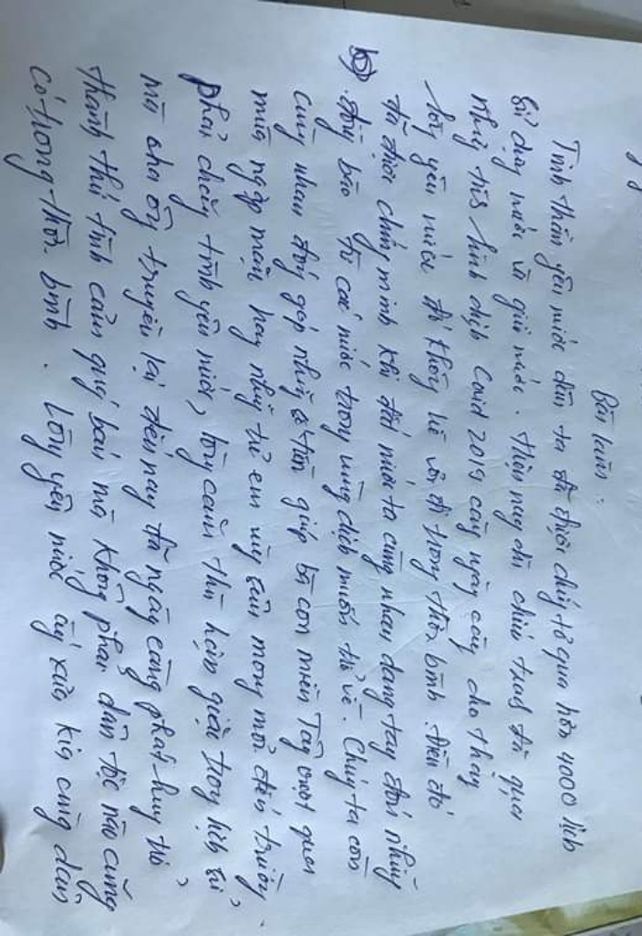 Bài luận.
Tinh thần yêu nước dân ta đã được chứng tỏ qua hơn 4000 lịch
sử dựng nước và giữ nước. Hiện nay dù chiến tranh đã qua
nhưng tình hình dịch Covid 2019 càng ngày càng cho thấy
lòng yêu nước đó không hề vơi đi trong thời bình. Điều đó
đã được chứng minh khi đất nước ta cùng nhau dang tay đón những
đồng bào từ các nước trong vùng dịch muốn trở về. Chúng ta còn
cùng nhau đóng góp những tiền giúp bà con miền Tây vượt qua
mùa ngập mặn hay những trẻ em vùng mong mỏi đến trường.
Phải chăng tình yêu nước, lòng căm thù hằn giặc trong lịch sử
mà cha ông truyền lại đến nay đã ngày càng phát huy trở
thành thứ tình cảm quý báu mà không phải dân tộc nào cũng
có trong thời bình. Lòng yêu nước ấy xưa kia cùng dân